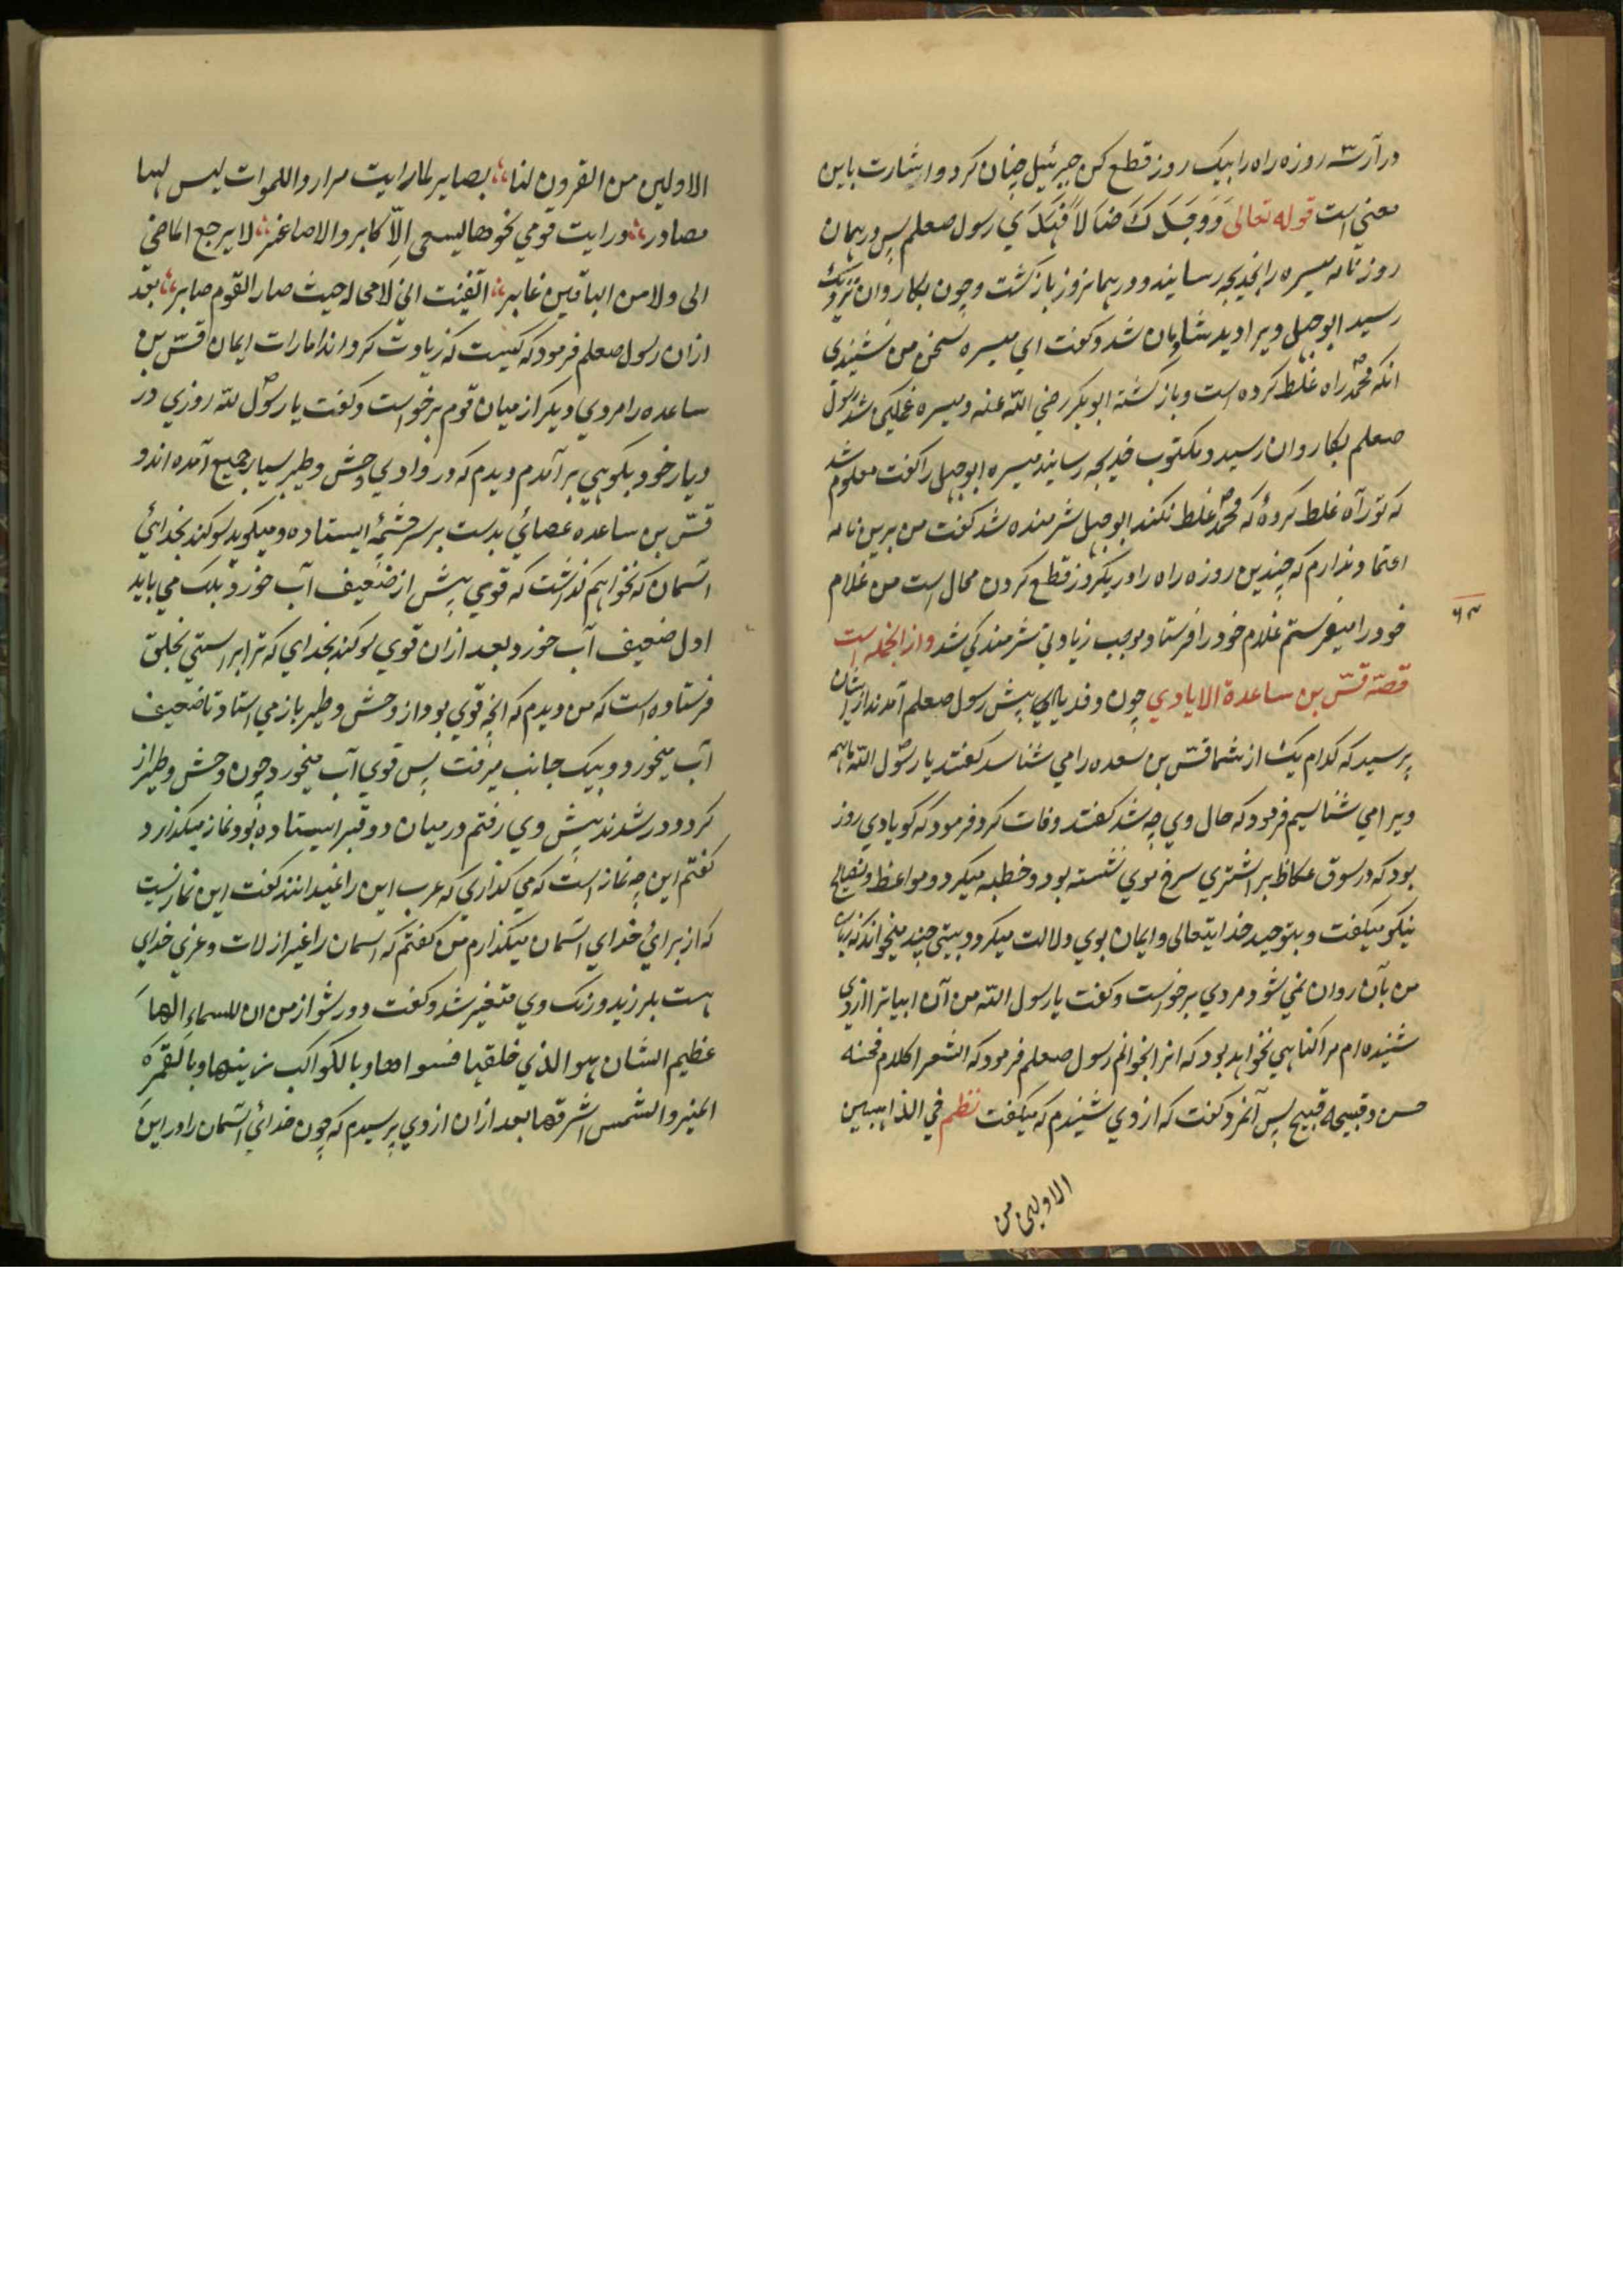 درآر سه روزه راه را بیک روز قطع کن جبرئیل چنان کرد و اشارت باین
معنی است قوله تعالی وَوَجَدَكَ ضَالاًّ فَهَدَی رسول صعلم پس در همان
روز نامه میسره را بخدیجه رسانید و در همانروز بازگشت و چون بکاروان نزدیک
رسید ابوجهل ویرا دید شادمان شد و گفت ای میسره سخن من نشنیدی
انکه محمد راه غلط کرده است و بازگشته ابوبکر رضی الله عنه و میسره غمگین شد رسول
صعلم بکاروان رسید و مکتوب خدیجه رسانید میسره ابوجهل را گفت معلوم شد
که تو راه غلط کردهٔ که محمد غلط نکند ابوجهل شرمنده شد گفت من برین نامه
اعتماد ندارم که چندین روزه راه را در یکروز قطع کردن محال است من غلام
خود را میفرستم غلام خود را فرستاد و موجب زیادتی شرمندگی شد و از انجمله است
۶۳
قصّه قسّ بن ساعدة الایادي چون وفد ایاد پیش رسول صعلم آمدند از ایشان
پرسید که کدام یک از شما قسّ بن سعده را می شناسد گفتند یا رسول الله ما همه
ویرا می شناسیم فرمود که حال وی چه شد گفتند وفات کرد فرمود که گویا دی روز
بود که در سوق عکاظ بر اشتری سرخ موی نشسته بود و خطبه میکرد و مواعظ و نصایح
نیکو میگفت و بتوحید خدایتعالی و ایمان بوی دلالت میکرد و بیتی چند میخواند که زبان
من بآن روان نمی شود مردی برخواست و گفت یا رسول الله من آن ابیاترا از وی
شنیده ام مرا گناهی نخواهد بود که انرا بخوانم رسول صعلم فرمود که الشعر کلام فحسنه
حسن و قبیحه قبیح پس آنمرد گفت که از وی شنیدم که میگفت نظم في الذاهبین
الاولین من
الاولین من القرون لنا بصایر لما رایت مرارد اللموات لیس لها
مصادر ورایت قومي نحوها یسعی الاّ کابر والاصاغر لا یرجع الماضي
الی ولا من الباقین غابر ایقنت اني لا محاله حیث صار القوم صابر بعد
ازان رسول صعلم فرمود که کیست که زیادت کرداند امارات ایمان قسّ بن
ساعده را مردی دیگر از میان قوم برخواست و گفت یا رسول الله روزی در
دیار خود بکوهی بر آمدم دیدم که در وادی وحش و طیر بسیار جمیع آمده اند و
قسّ بن ساعده عصائی بدست بر سر چشمهٔ ایستاده و میگوید سوگند بخدائی
آسمان که نخواهم گذاشت که قوی پیش از ضعیف آب خورد بلک می باید
اول ضعیف آب خورد بعد ازان قوی سوگند بخدای که ترا براستی بخلق
فرستاده است که من دیدم که انچه قوی بود از وحش و طیر باز می استاد تا ضعیف
آب میخورد و بیک جانب میرفت پس قوی آب میخورد چون وحش و طیر از
گرد دور شدند پیش وی رفتم در میان دو قبر ایستاده بود نماز میگذارد
گفتم این چه نماز است که می گذاری که عرب این را نمیدانند گفت این نمازیست
که از برائ خدای آسمان میگذارم من گفتم که اسمان را غیر از لات و عزی خدای
هست بلرزید و رنگ وی متغیر شد و گفت دور شو از من ان للسماء الها
عظیم الشان هو الذي خلقها فسواها وبالکواکب زینها وبالقمر
المنیر والشمس اشرقها بعد ازان از وی پرسیدم که چون خدائ آسمان را در این